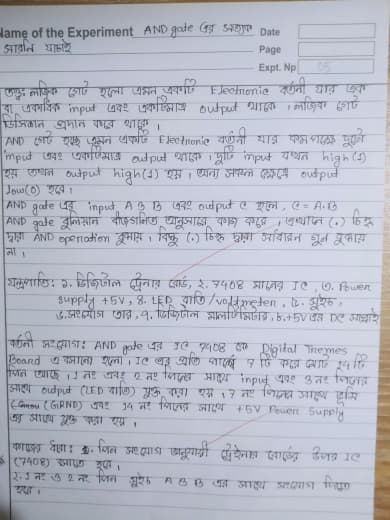 Name of the Experiment AND gate এর সত্যক Date
সারনি যাচাই Page
Expt. No 03
তত্ত্ব: লজিক গেট হলো এমন একটি Electronic বর্তনী যার এক
বা একাধিক input এবং একটিমাত্র output থাকে । লজিক গেট
ডিসিশান প্রদান করে থাকে ।
AND গেট হচ্ছে এমন একটি Electronic বর্তনী যার কমপক্ষে দুটো
input এবং একটিমাত্র output থাকে । দুটি input যখন high(1)
হয় তখন output high(1) হয় । অন্য সকল ক্ষেত্রে output
low(0) হবে ।
AND gate এর input A ও B এবং output C হলে, C = A.B
AND gate বুলিয়ান বীজগনিত অনুসারে কাজ করে । এখানে (.) চিহ্ন
দ্বারা AND operation বুঝায় । কিন্তু (.) চিহ্ন দ্বারা সাধারন গুন বুঝায়
না ।
যন্ত্রপাতি: ১. ডিজিটাল ট্রেনার বোর্ড, ২. 7408 মানের IC, ৩. Power
supply +5V, ৪. LED বাতি / voldmeter, ৫. সুইচ,
৬. সংযোগ তার, ৭. ডিজিটাল মালটিমিটার, ৮. +5V এর DC সাপ্লাই
বর্তনী সংযোগ: AND gate এর IC 7408 কে Digital
Board এ বসানো হলো । IC এর প্রতি পার্শ্বে 7 টি করে মোট 14 টি
পিন আছে । 1 নং এবং 2 নং পিনের সাথে input এবং 3 নং পিনের
সাথে output (LED বাতি) যুক্ত করা হয় । 7 নং পিনের সাথে ভূমি
(GRND) এবং 14 নং পিনের সাথে +5V Power Supply
এর সাথে যুক্ত করা হয় ।
কাজের ধারা: ১. পিন সংযোগ অনুযায়ী ট্রেইনার বোর্ডের উপর IC
(7408) বসাতে হবে ।
২. 1 নং ও 2 নং পিন সুইচ A ও B এর সাথে সংযোগ দিতে
হবে ।